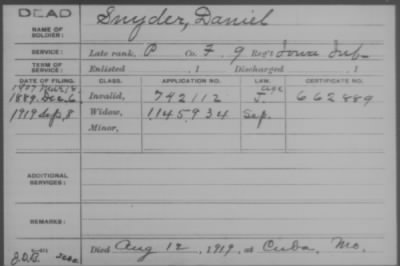 DEAD
Snyder, Daniel
NAME OF SOLDIER:
SERVICE: Late rank, P Co. F. 9 Reg't Iowa Inf.
TERM OF SERVICE: Enlisted , 1 Discharged , 1
DATE OF FILING. CLASS. APPLICATION NO. LAW. CERTIFICATE NO.
Age
1889. Dec. 6. Invalid, 742112 J. 662889
1919 Sep. 8 Widow, 1145934 Sep.
Minor,
ADDITIONAL SERVICES:
REMARKS:
Died Aug 12, 1919, at Cuba, Mo.